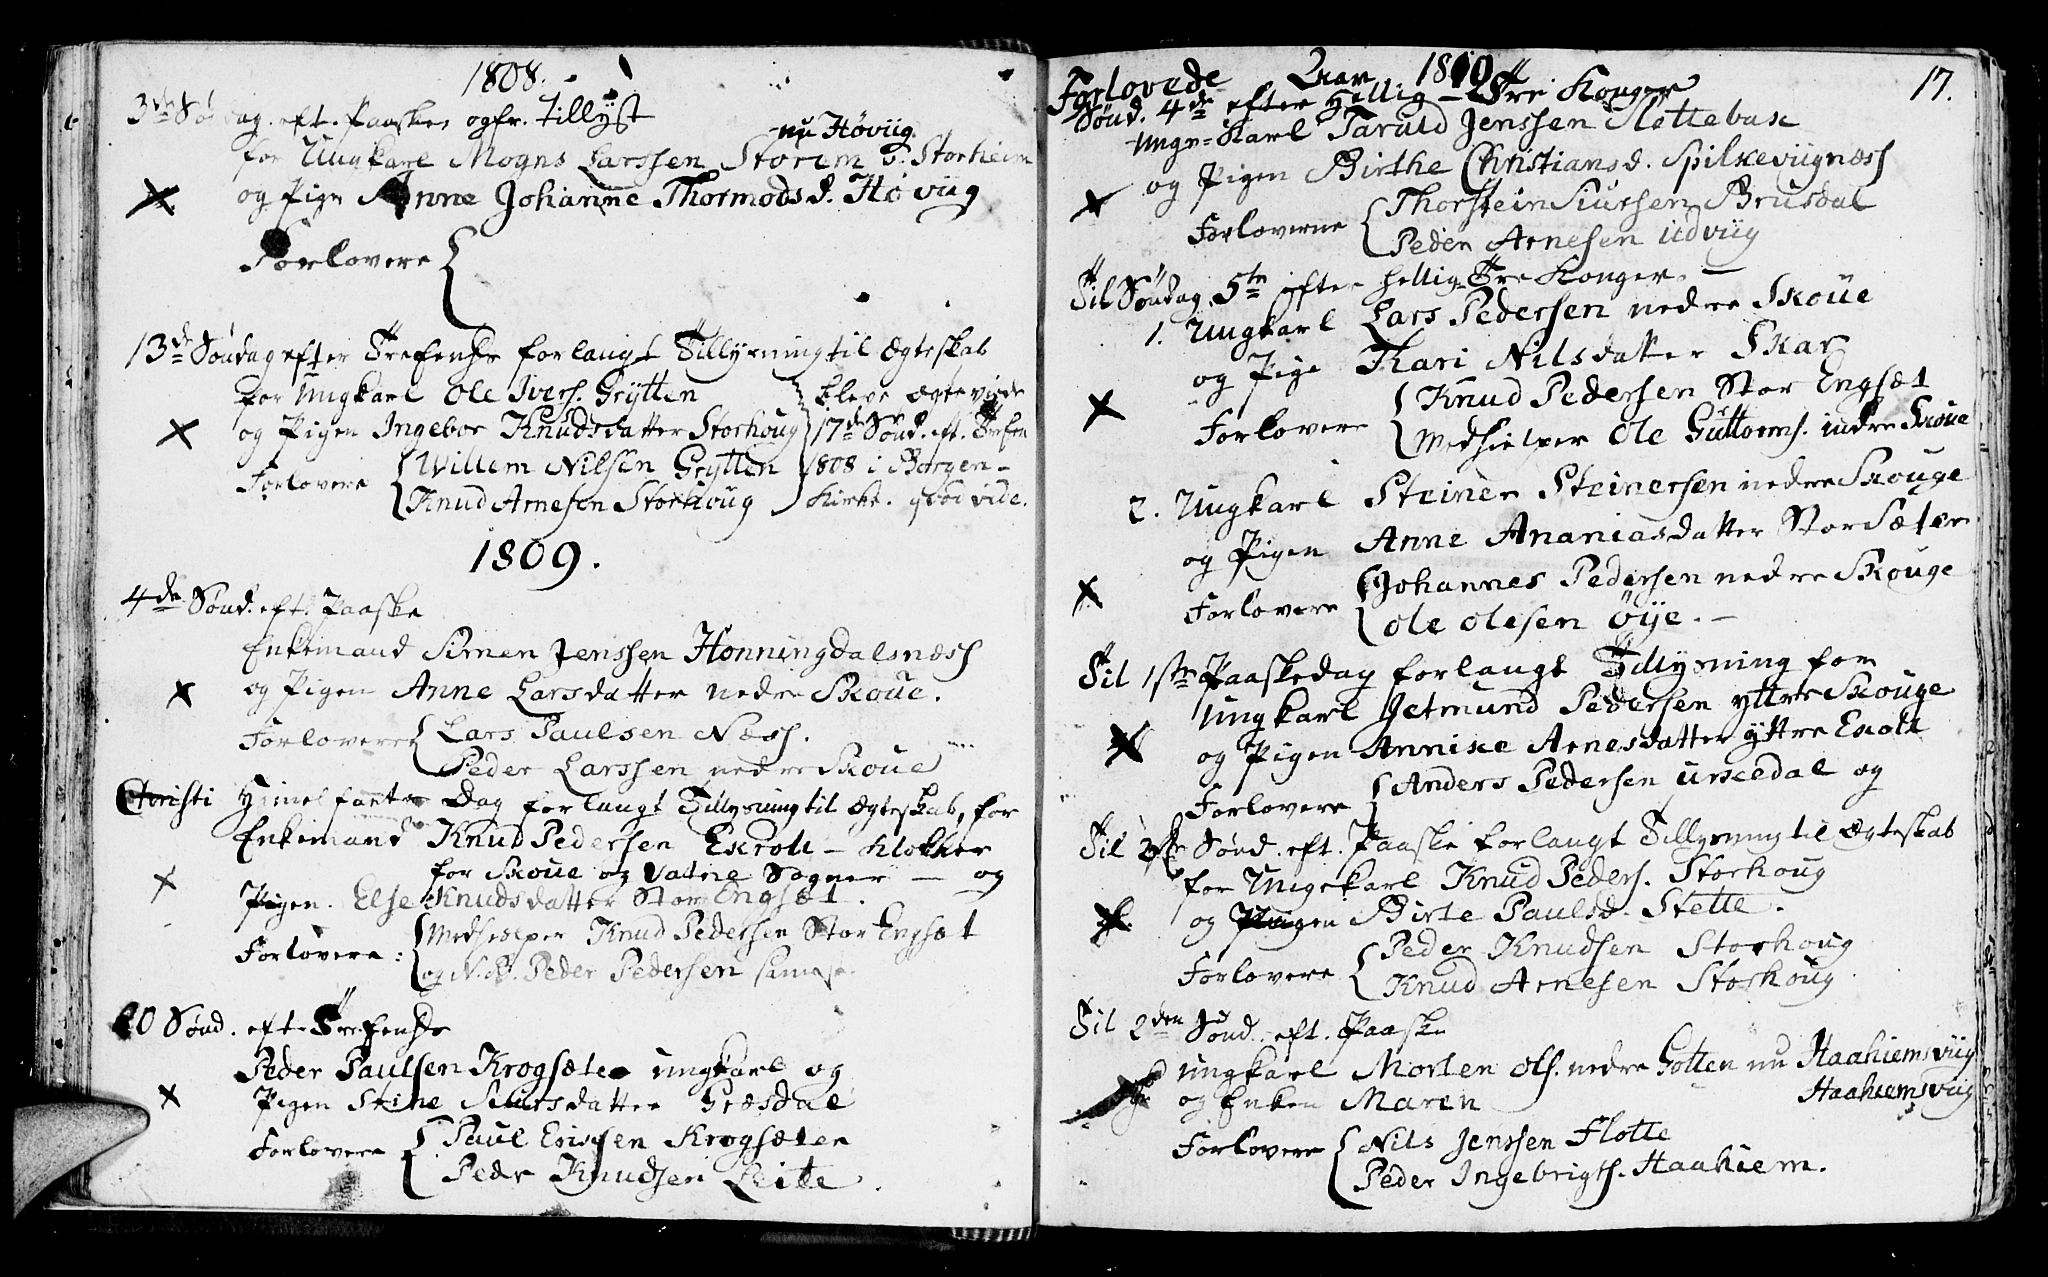 1808.
3de Søndag eft. Paaske ogfr. tillyst
nu Høviig
for Ungkarl Mogns Larssen Storem b. Storheim
og Pige Anne Johanne Thormodsd. Høviig
Forlovere
13de Søndag efter Trefend: forlangt Tillysning til Ægteskab
for Ungkarl Ole Ivers. Grÿtten
og Pigen Ingebor Knudsdatter Storhoug
Forlovere Willem Nilsen Grytten
Knud Arnesen Storhoug
bleve ægteviede
17de Sønd. eft. Trefen
1808 i Borgen-
Kirke. qvod vide.
1809.
4de Sønd. eft. Paaske
Enkemand Simen Jenssen Honningdalsnæss
og Pigen Anne Larsdatter nedre Skoue.
Forlovere Lars Paulsen Næss.
Peder Larssen nedre Skoue
Christi Himelfarts Dag forlangt Tillysning til Ægteskab, for
Enkemand Knud Pedersen Exroll - Klokker
for Skoue og Vatne Sogner - og
Pigen. Else Knudsdatter Stor Engsæt.
Forlovere: Medhielper Knud Pedersen Stor Engsæt
og N.B. Peder Pedersen samest.
20 Sønd. eft. Trefend:
Peder Paulsen Krogsæter ungkarl og
Pigen Stine Siursdatter Græsdal
Forlovere Paul Erissen Krogsæter
Peder Knudsen Leite.
17.
Forlovede Aar 1810
Sønd. 4de efter Hellig-Tre Konger
Unge-Karl Tarald Jenssen Slottebak
og Pigen Birthe Christiansd. Spilkeviignæss
Forloverne Thorstein Siursen Brusdal
Peder Arnesen Udviig
Til Søndag 5te efter hellig Tre Konger -
1. Ungkarl Lars Pedersen nedre Skoue
og Pige Kari Nilsdatter Skar
Forlovere Knud Pedersen Stor Engsæt
Medhielper Ole Guttorms. indre Skoue
2. Ungkarl Steiner Steinersen nedre Skouge
og Pigen Anne Ananiasdatter Stor Sæter
Forlovere Johannes Pedersen nedre Skouge
Ole Olesen Øye. -
Til 1ste Paaskedag forlangt Tillysning for
Ungkarl Jetmund Pedersen yttre Skouge
og Pigen Annike Arnesdatter yttre Exoll
Forlovere Anders Pedersen Urkedal og
Til Sønd. eft. Paaske forlangt Tillysning til Ægteskab
for Ungekarl Knud Peders. Storhoug
og Pigen Birte Paulsd. Stette.
Forlovere Peder Knudsen Storhoug
Knud Arnesen Storhoug
Til 2den Sønd. eft. Paaske
Ungkarl Morten Ols. nedre Gotten nu Haahiemsviig
og Enken Maren Haahiemsviig
Forlovere Nils Jenssen Flotte
Peder Ingebrigts. Haahiem.